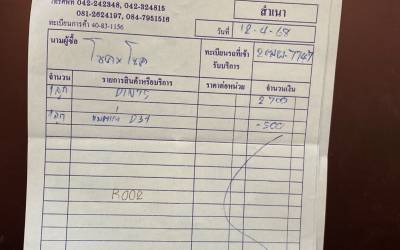 โทรศัพท์ 042-242348, 042-324815
081-2624197, 084-7951516
ทะเบียนการค้า 40-83-1156
สำเนา
วันที่ 12-4-68
นามผู้ซื้อ
ทะเบียนรถที่เข้ารับบริการ
จำนวน รายการสินค้าหรือบริการ ราคาต่อหน่วย จำนวนเงิน
1 ลูก DIN75 2700
1 ลูก D31 -500
R002